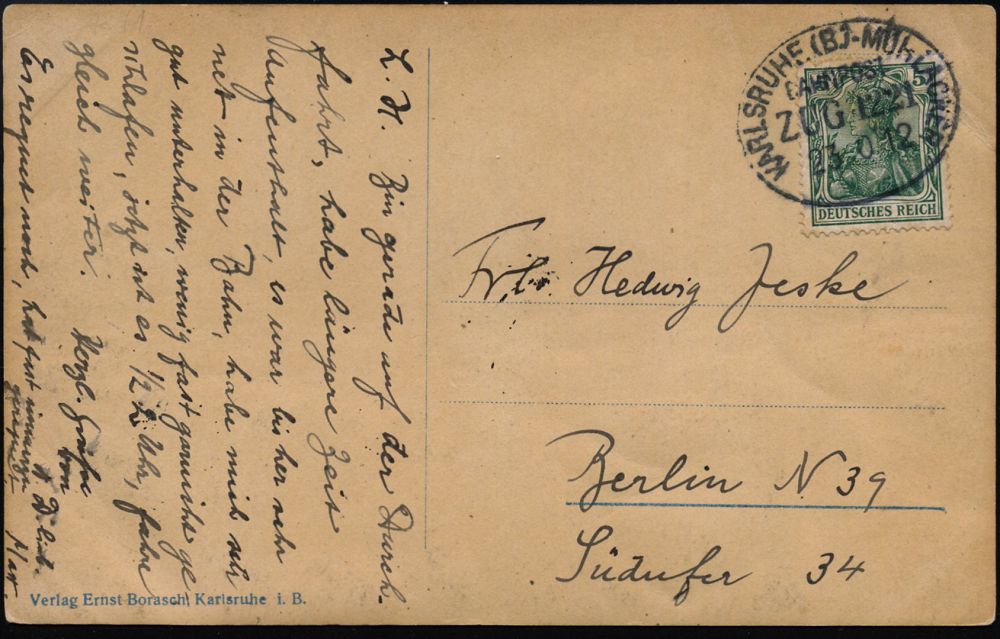 L. H. Bin gerade auf der Durch-
fahrt, habe längere Zeit
Aufenthalt, es war bis her sehr
nett in der Bahn, habe mich sehr
gut unterhalten, wenig fast garnicht ge
schlafen, jetzt ist es 1/2 2 Uhr, fahre
gleich weiter.
Herzl. Grüße
von
D. lieb.
Max
Es regnet noch, hat fast immerzu
geregnet
KARLSRUHE (B.)-MÜHLACKER
BAHNPOST
ZUG 1221
5
DEUTSCHES REICH
Frl. Hedwig Jeske
Berlin N 39
Südufer 34
Verlag Ernst Borasch, Karlsruhe i. B.